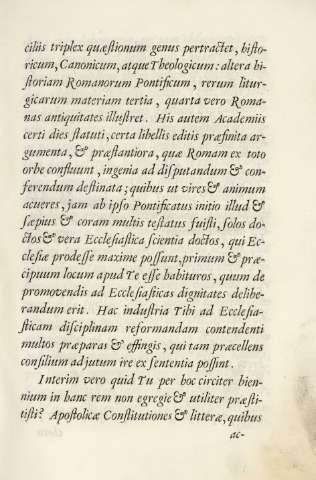 ciliis triplex quæstionum genus pertractet, histo-
ricum, Canonicum, atque Theologicum: altera hi-
storiam Romanorum Pontificum, rerum litur-
gicarum materiam tertia, quarta vero Roma-
nas antiquitates illustret. His autem Academiis
certi dies statuti, certa libellis editis præfinita ar-
gumenta, & præstantiora, quæ Romam ex toto
orbe confluunt, ingenia ad disputandum & con-
ferendum destinata; quibus ut vires & animum
acueres, jam ab ipso Pontificatus initio illud &
sæpius & coram multis testatus fuisti, solos do-
ctos & vera Ecclesiastica scientia doctos, qui Ec-
clesiæ prodesse maxime possunt, primum & præ-
cipuum locum apud Te esse habituros, quum de
promovendis ad Ecclesiasticas dignitates delibe-
randum erit. Hac industria Tibi ad Ecclesia-
sticam disciplinam reformandam contendenti
multos præparas & effingis, qui tam præcellens
consilium adjutum ire ex sententia possint.
Interim vero quid Tu per hoc circiter bien-
nium in hanc rem non egregie & utiliter præsti-
tisti? Apostolicæ Constitutiones & litteræ, quibus
ac-